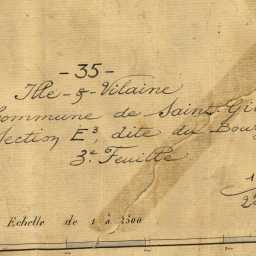 -35-
Ille-&-Vilaine
Commune de Saint-Gi
Section E³, dite du Bour
3ᵉ Feuille
1
2
Echelle de 1 à 2500